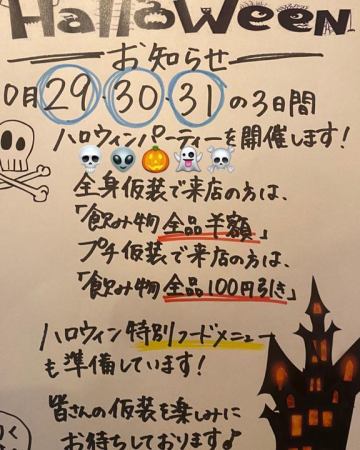 Halloween
お知らせ
0月29・30・31の3日間
ハロウィンパーティーを開催します!
全身仮装で来店の方は、
「飲み物全品半額」
プチ仮装で来店の方は、
「飲み物全品100円引き」
ハロウィン特別フードメニュー
も準備しています!
皆さんの仮装を楽しみに
お待ちしております♪